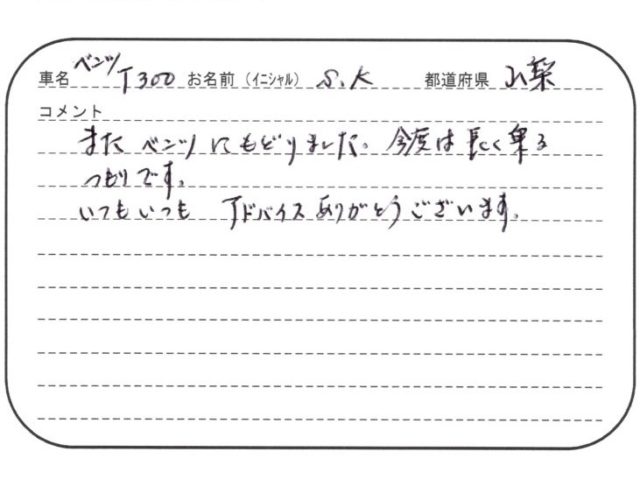 車名 ベンツ T300 お名前（イニシャル） S.K 都道府県 山梨
コメント
また ベンツ にもどりました。今度は長く乗る
つもりです。
いつもいつも アドバイスありがとうございます。